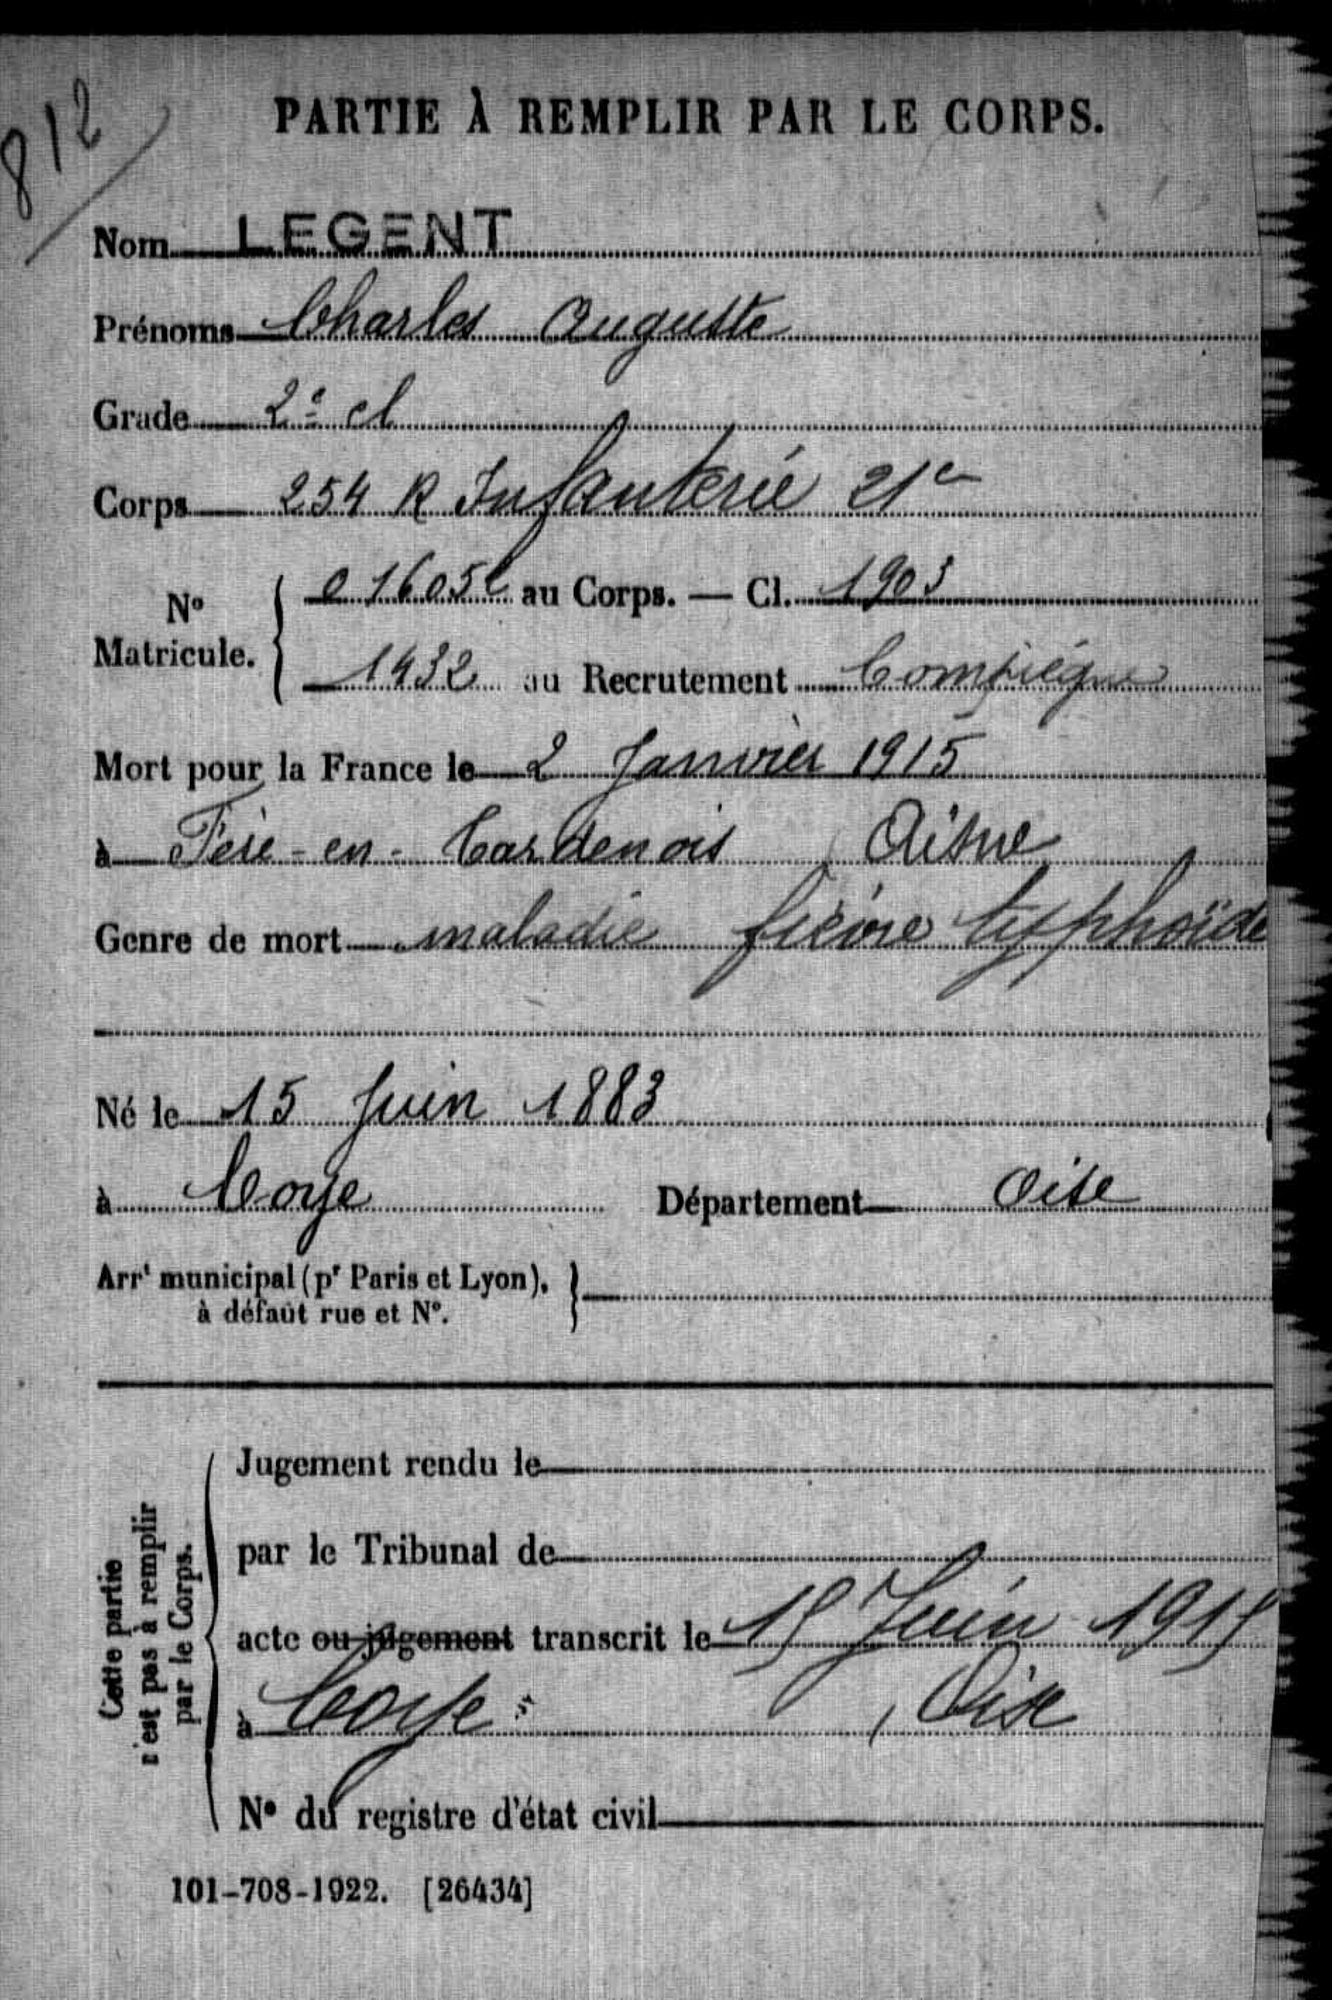 812
PARTIE À REMPLIR PAR LE CORPS.
Nom LEGENT
Prénoms Charles Auguste
Grade 2e cl
Corps 254 R Infanterie 21e
No Matricule. { 0 1605 au Corps. — Cl. 1903
1432 au Recrutement Compiègne
Mort pour la France le 2 Janvier 1915
à Fère-en-Tardenois Aisne
Genre de mort maladie fièvre typhoïde
Né le 15 Juin 1883
à Coye Département Oise
Arrt municipal (pr Paris et Lyon),
à défaut rue et No.
Cette partie
n'est pas à remplir
par le Corps.
Jugement rendu le
par le Tribunal de
acte ou jugement transcrit le 15 Juin 1915
à Coye, Oise
No du registre d'état civil
101-708-1922. [26434]